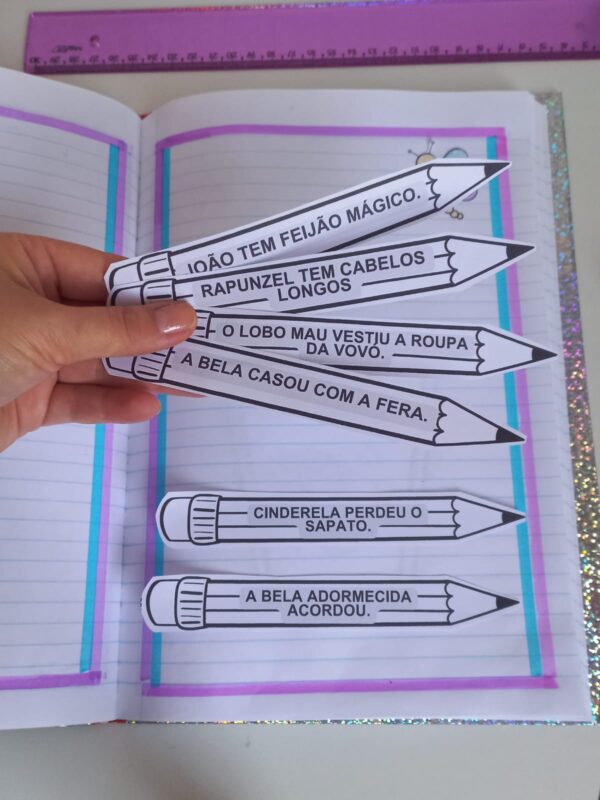 JOÃO TEM FEIJÃO MÁGICO.
RAPUNZEL TEM CABELOS
LONGOS
O LOBO MAU VESTIU A ROUPA
DA VOVÓ.
A BELA CASOU COM A FERA.
CINDERELA PERDEU O
SAPATO.
A BELA ADORMECIDA
ACORDOU.